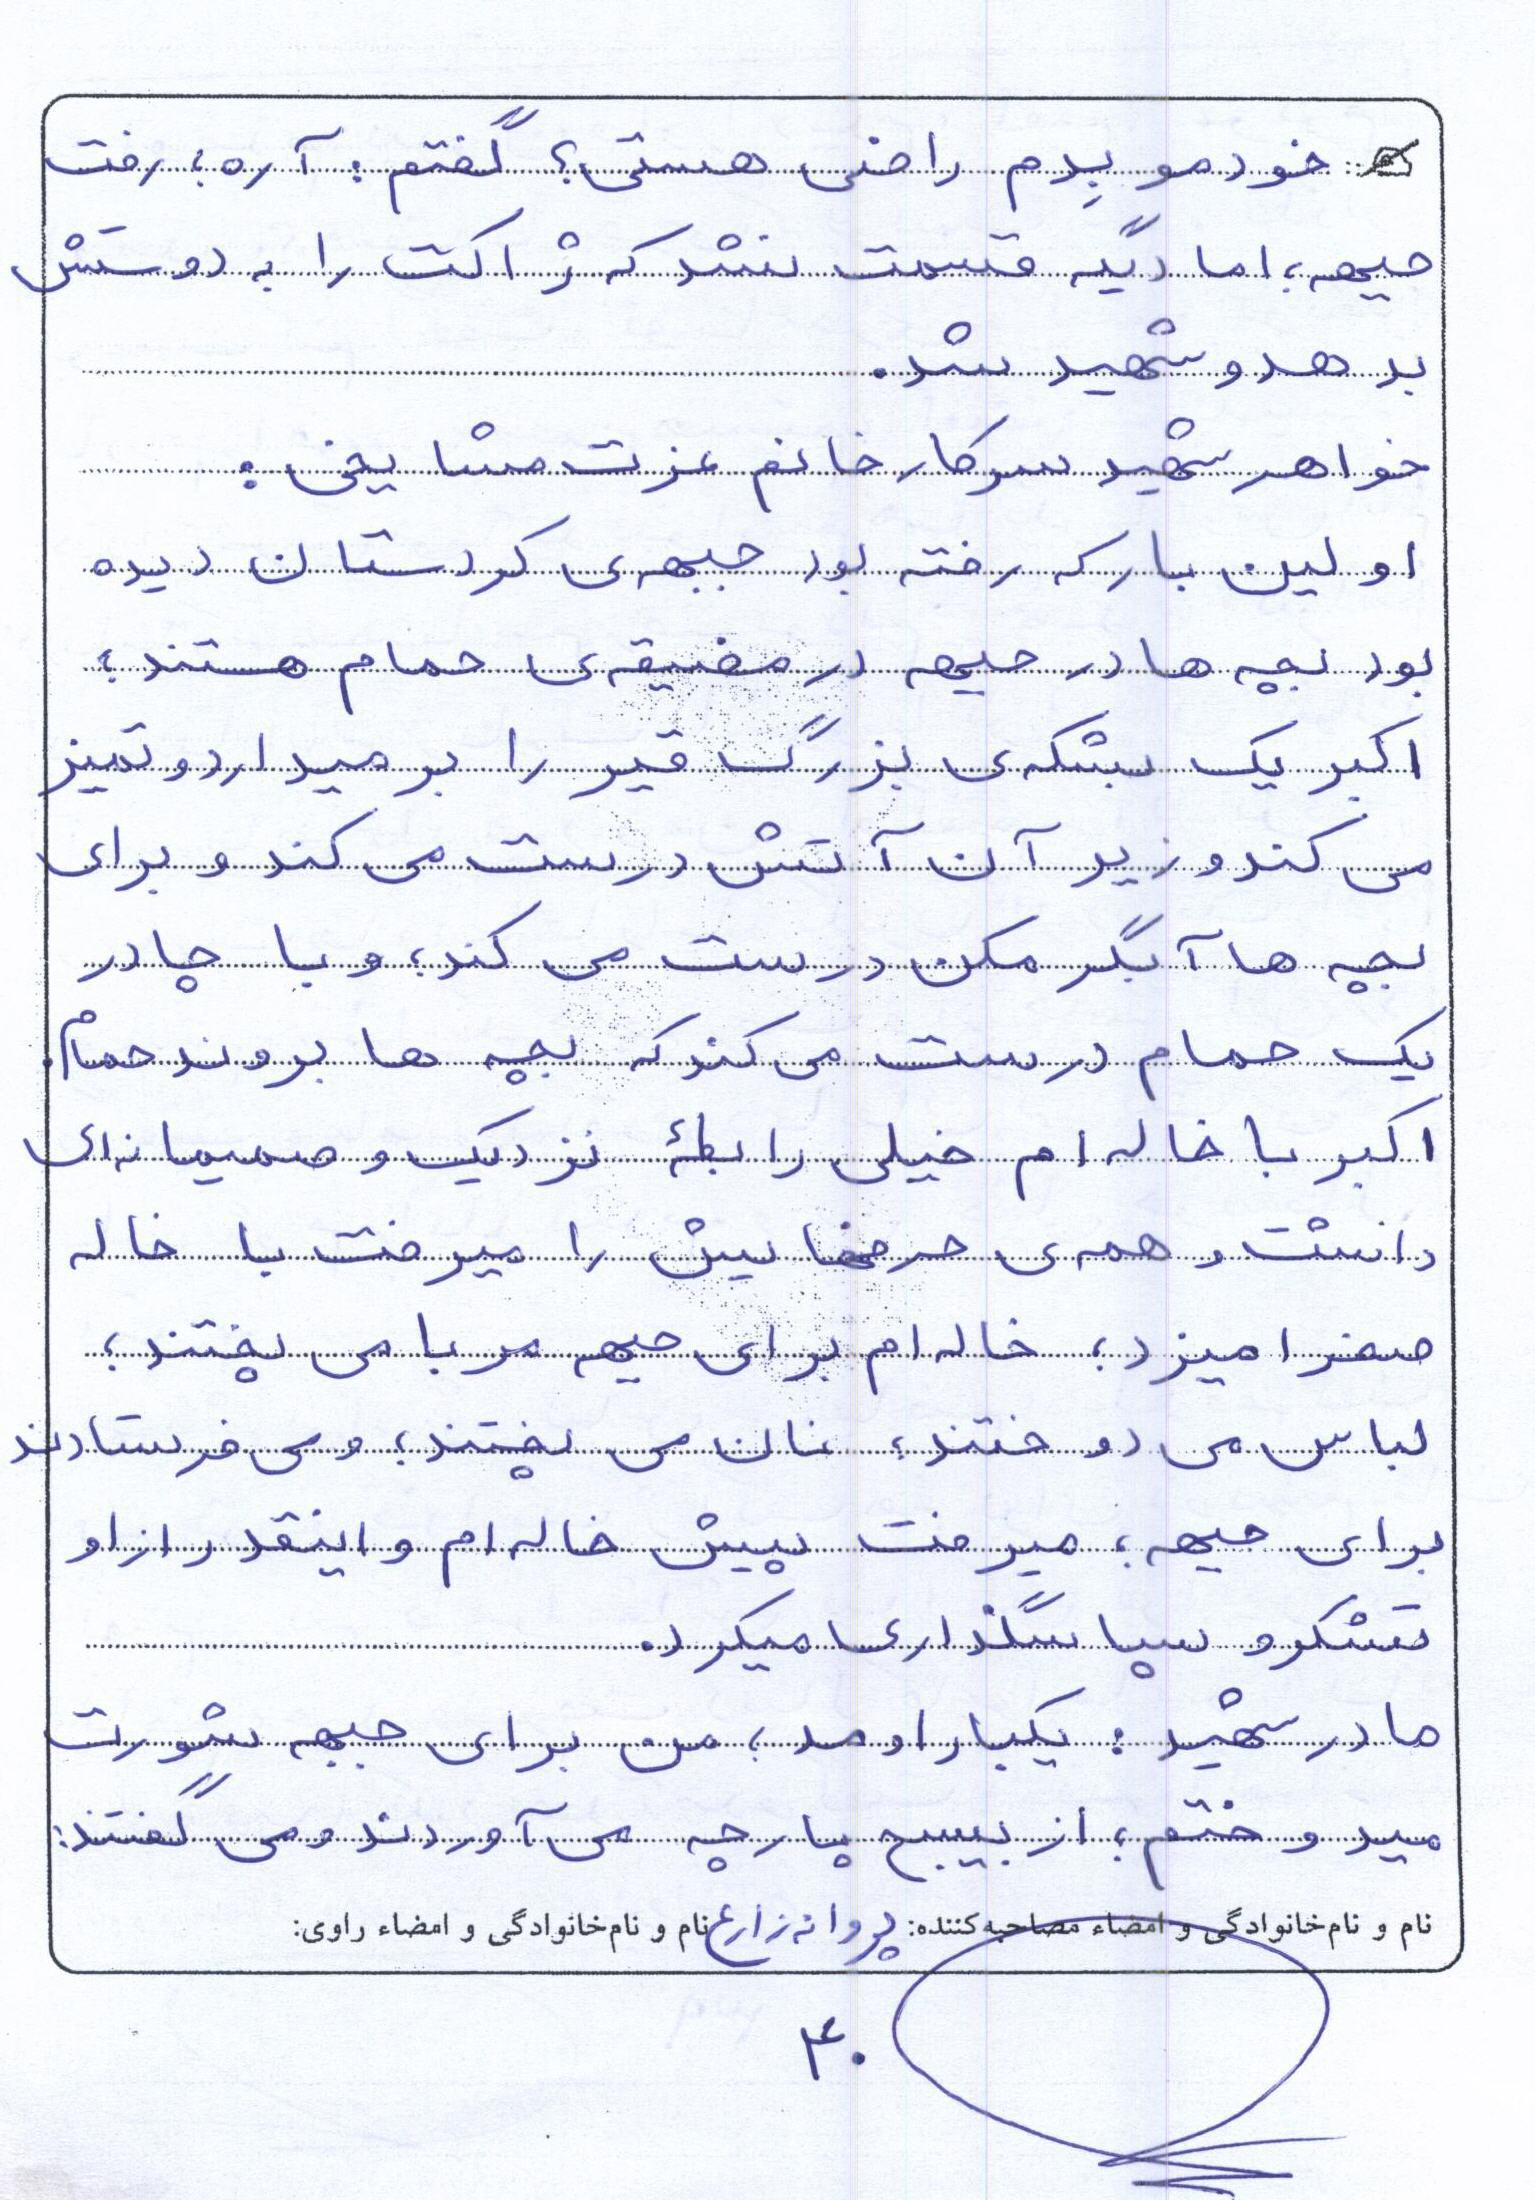 خودمو بِدم راضی هستی؟ گفتم: آره؛ رفت
جبهه؛ اما دیگه قسمت نشد که ژاکت را به دوستش
بدهد و شهید شد.
خواهر شهید سرکار خانم عزت مشایخی:
اولین بار که رفته بود جبهه‌ی کردستان دیده
بود بچه ها در جبهه در مضیقه‌ی حمام هستند؛
اکبر یک بشکه‌ی بزرگ قیر را برمیدارد و تمیز
می کند و زیر آن آتش درست می کند و برای
بچه ها آبگرمکن درست می کند؛ و با چادر
یک حمام درست می کند که بچه ها بروند حمام.
اکبر با خاله ام خیلی رابطۀ نزدیک و صمیمانه‌ای
داشت و همه‌ی حرفهایش را میرفت با خاله
صغرا میزد؛ خاله ام برای جبهه مربا می پختند؛
لباس می دوختند؛ نان می پختند؛ و می فرستادند
برای جبهه؛ میرفت پیش خاله ام و اینقدر از او
تشکر و سپاسگذاری میکرد.
مادر شهید: یکبار اومد؛ من برای جبهه شورت
میدوختم؛ از بسیج پارچه می آوردند و می گفتند:
نام و نام‌خانوادگی و امضاء مصاحبه‌کننده: پروانه زارع نام و نام‌خانوادگی و امضاء راوی:
۴۰